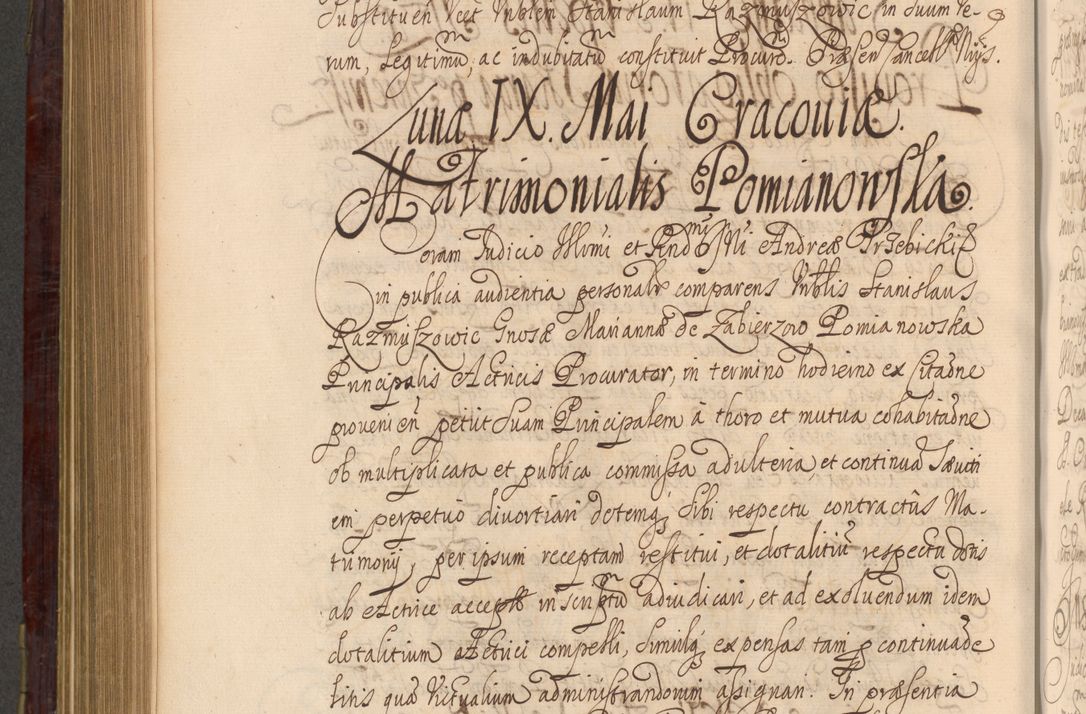 Substituen Vcet Nblem Stanislaum Razmyszowic in suum ve-
rum, Legitimũ, ac indubitatũ constituit Procuro. Præsen Cancell Nys.
Lunæ IX. Mai Cracouiæ.
Matrimonialis Pomianowska.
Coram Judicio Illmi et Rndmi Dni Andreæ Trzebicki Eᵽ
in publica audientia personalr comparens Nblis Stanislaus
Razmyszowic Gnosæ Mariannæ de Zabierzowo Pomianowska
Principalis Actricis Procurator, in termino hodierno ex Citaõne
provenien petiit Suam Principalem à thoro et mutua cohabitaõne
ob multiplicata et publica commissa adulteria, et continuâ Sæviti
em perpetuo divortiari dotemq; Sibi respectu contractûs Ma-
trimonij, per ipsum receptam restitui, et dotalitiũ respectu dotis
ab Actrice acceptæ inscriptũ adiudicari, et ad exoluendum idem
dotalitium Actrici compelli, Similiq; expensas tam ᵽ continuaõe
litis quã Victualium administrandorum assignari. In præsentia